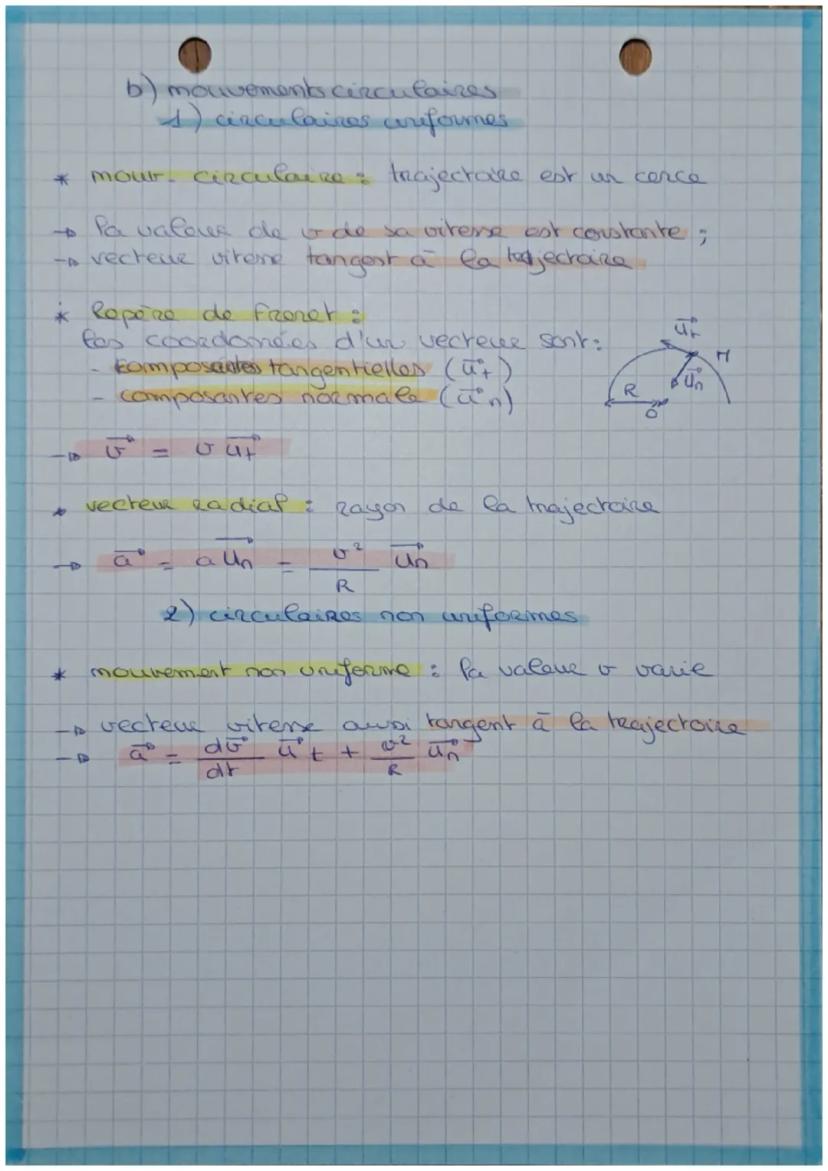 b) mouvements circulaires
1) circulaires uniformes
* mouv. circulaire : trajectoire est un cerce
→ la valeur de v de sa vitesse est constante ;
→ vecteur vitesse tangent à la trajectoire
* Repère de Frenet :
les coordonnées d'un vecteur sont :
- composantes tangentielles (u⃗t)
- composantes normale (u⃗n)
u⃗t
M
u⃗n
R
O
→ v⃗ = v u⃗t
* vecteur radial : rayon de la trajectoire
→ a⃗ = a u⃗n = v²/R u⃗n
2) circulaires non uniformes
* mouvement non uniforme : la valeur v varie
→ vecteur vitesse aussi tangent à la trajectoire
→ a⃗ = dv⃗/dt u⃗t + v²/R u⃗n